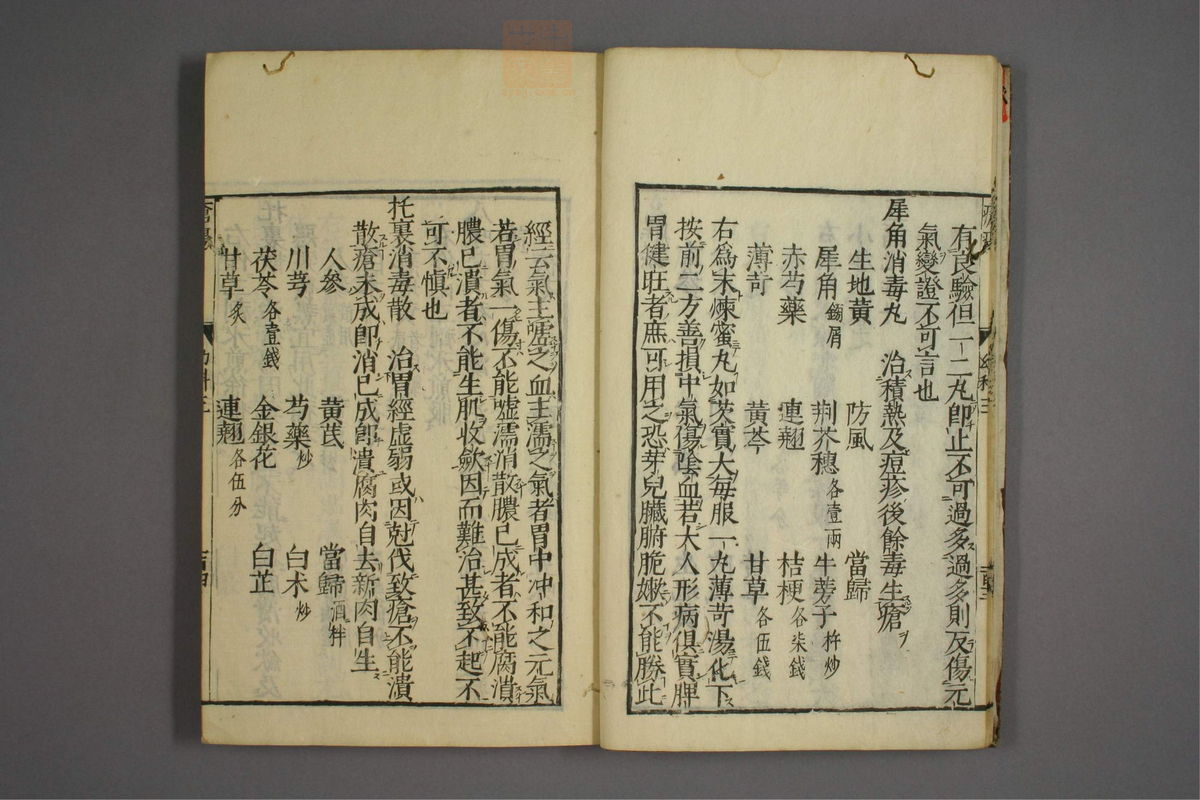 有良驗但一二丸卽止不可過多過多則反傷元
氣變證不可言也
犀角消毒丸　治積熱及痘疹後餘毒生瘡
生地黃　防風　當歸
犀角鎊屑　荆芥穗各壹兩　牛蒡子杵炒
赤芍藥　連翹　桔梗各柒錢
薄苛　黃芩　甘草各伍錢
右爲末煉蜜丸如芡實大每服一丸薄苛湯化下
按前二方善損中氣傷陰血若大人形病俱實脾
胃健旺者庶可用之恐芽兒臟腑脆嫰不能勝此
經云氣主噓之血主濡之氣者胃中冲和之元氣
若胃氣一傷不能噓濡消散膿已成者不能腐潰
膿已潰者不能生肌收斂因而難治甚致不起不
可不愼也
托裏消毒散　治胃經虛弱或因尅伐致瘡不能潰
散瘡未成卽消已成卽潰腐肉自去新肉自生
人參　黃芪　當歸酒拌
川芎　芍藥炒　白朮炒
茯苓各壹錢　金銀花　白芷
甘草炙　連翹各伍分